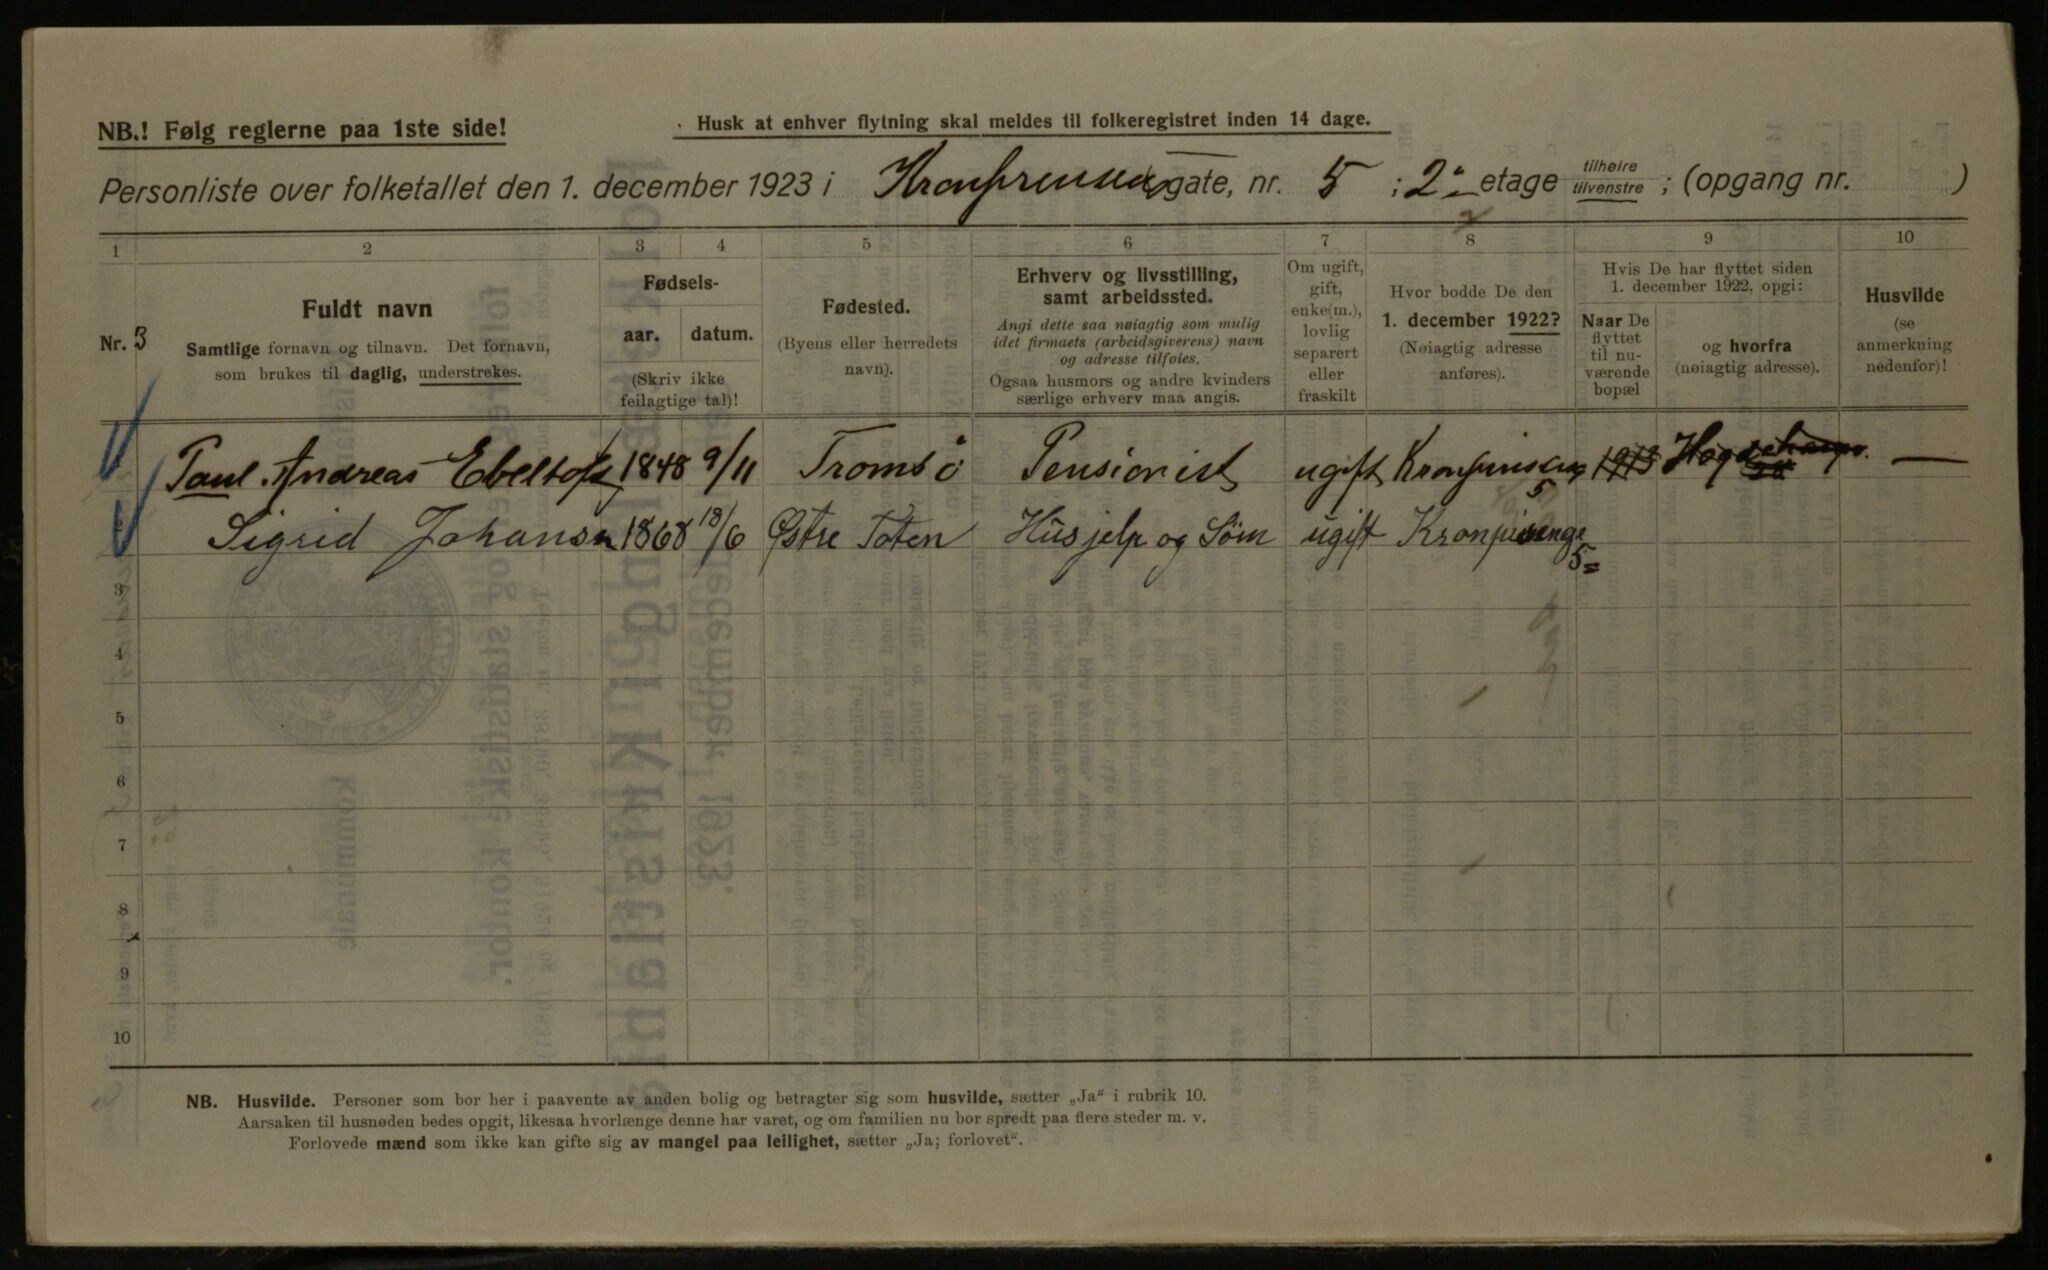 NB.! Følg reglerne paa 1ste side!
Husk at enhver flytning skal meldes til folkeregistret inden 14 dage.
Personliste over folketallet den 1. december 1923 i Kronprinsens gate, nr. 5 ; 2 etage tilhøire tilvenstre ; (opgang nr. )
1 2 3 4 5 6 7 8 9 10
Nr. 3
Fuldt navn
Samtlige fornavn og tilnavn. Det fornavn,
som brukes til daglig, understrekes.
Fødsels-
aar. datum.
(Skriv ikke
feilagtige tal)!
Fødested.
(Byens eller herredets
navn).
Erhverv og livsstilling,
samt arbeidssted.
Angi dette saa nøiagtig som mulig
idet firmaets (arbeidsgiverens) navn
og adresse tilføies.
Ogsaa husmors og andre kvinders
særlige erhverv maa angis.
Om ugift,
gift,
enke(m.),
lovlig
separert
eller
fraskilt
Hvor bodde De den
1. december 1922?
(Nøiagtig adresse
anføres).
Hvis De har flyttet siden
1. december 1922, opgi:
Naar De
flyttet
til nu-
værende
bopæl
og hvorfra
(nøiagtig adresse).
Husvilde
(se
anmerkning
nedenfor)!
Paul Andreas Ebeltoft 1848 9/11 Tromsö Pensionist ugift Kronprinsensg 5 1913 —
Sigrid Johansen 1868 18/6 Østre Toten Husjelp og Søm ugift Kronprinseng 5
3
4
5
6
7
8
9
10
NB. Husvilde. Personer som bor her i paavente av anden bolig og betragter sig som husvilde, sætter „Ja“ i rubrik 10.
Aarsaken til husnøden bedes opgit, likesaa hvorlænge denne har varet, og om familien nu bor spredt paa flere steder m. v.
Forlovede mænd som ikke kan gifte sig av mangel paa leilighet, sætter „Ja; forlovet“.